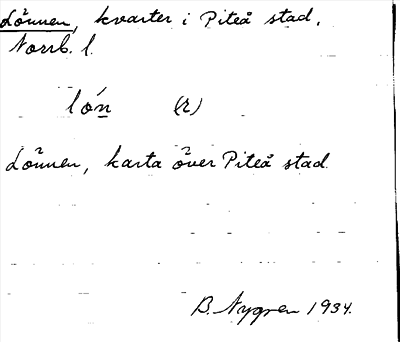 Lönnen, kvarter i Piteå stad,
Norrb. l.
lón (r)
Lönnen, karta över Piteå stad.
B. Nygren 1934.